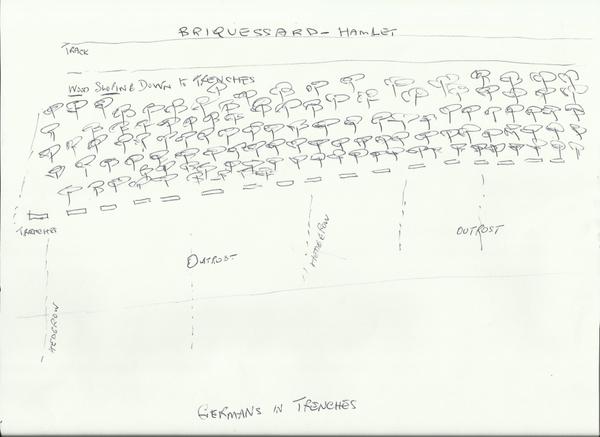 BRIQUESSARD - HAMLET
TRACK
WOOD SLOPING DOWN TO TRENCHES
TRENCHES
OUTPOST
HEDGEROW
OUTPOST
HEDGEROW
GERMANS IN TRENCHES